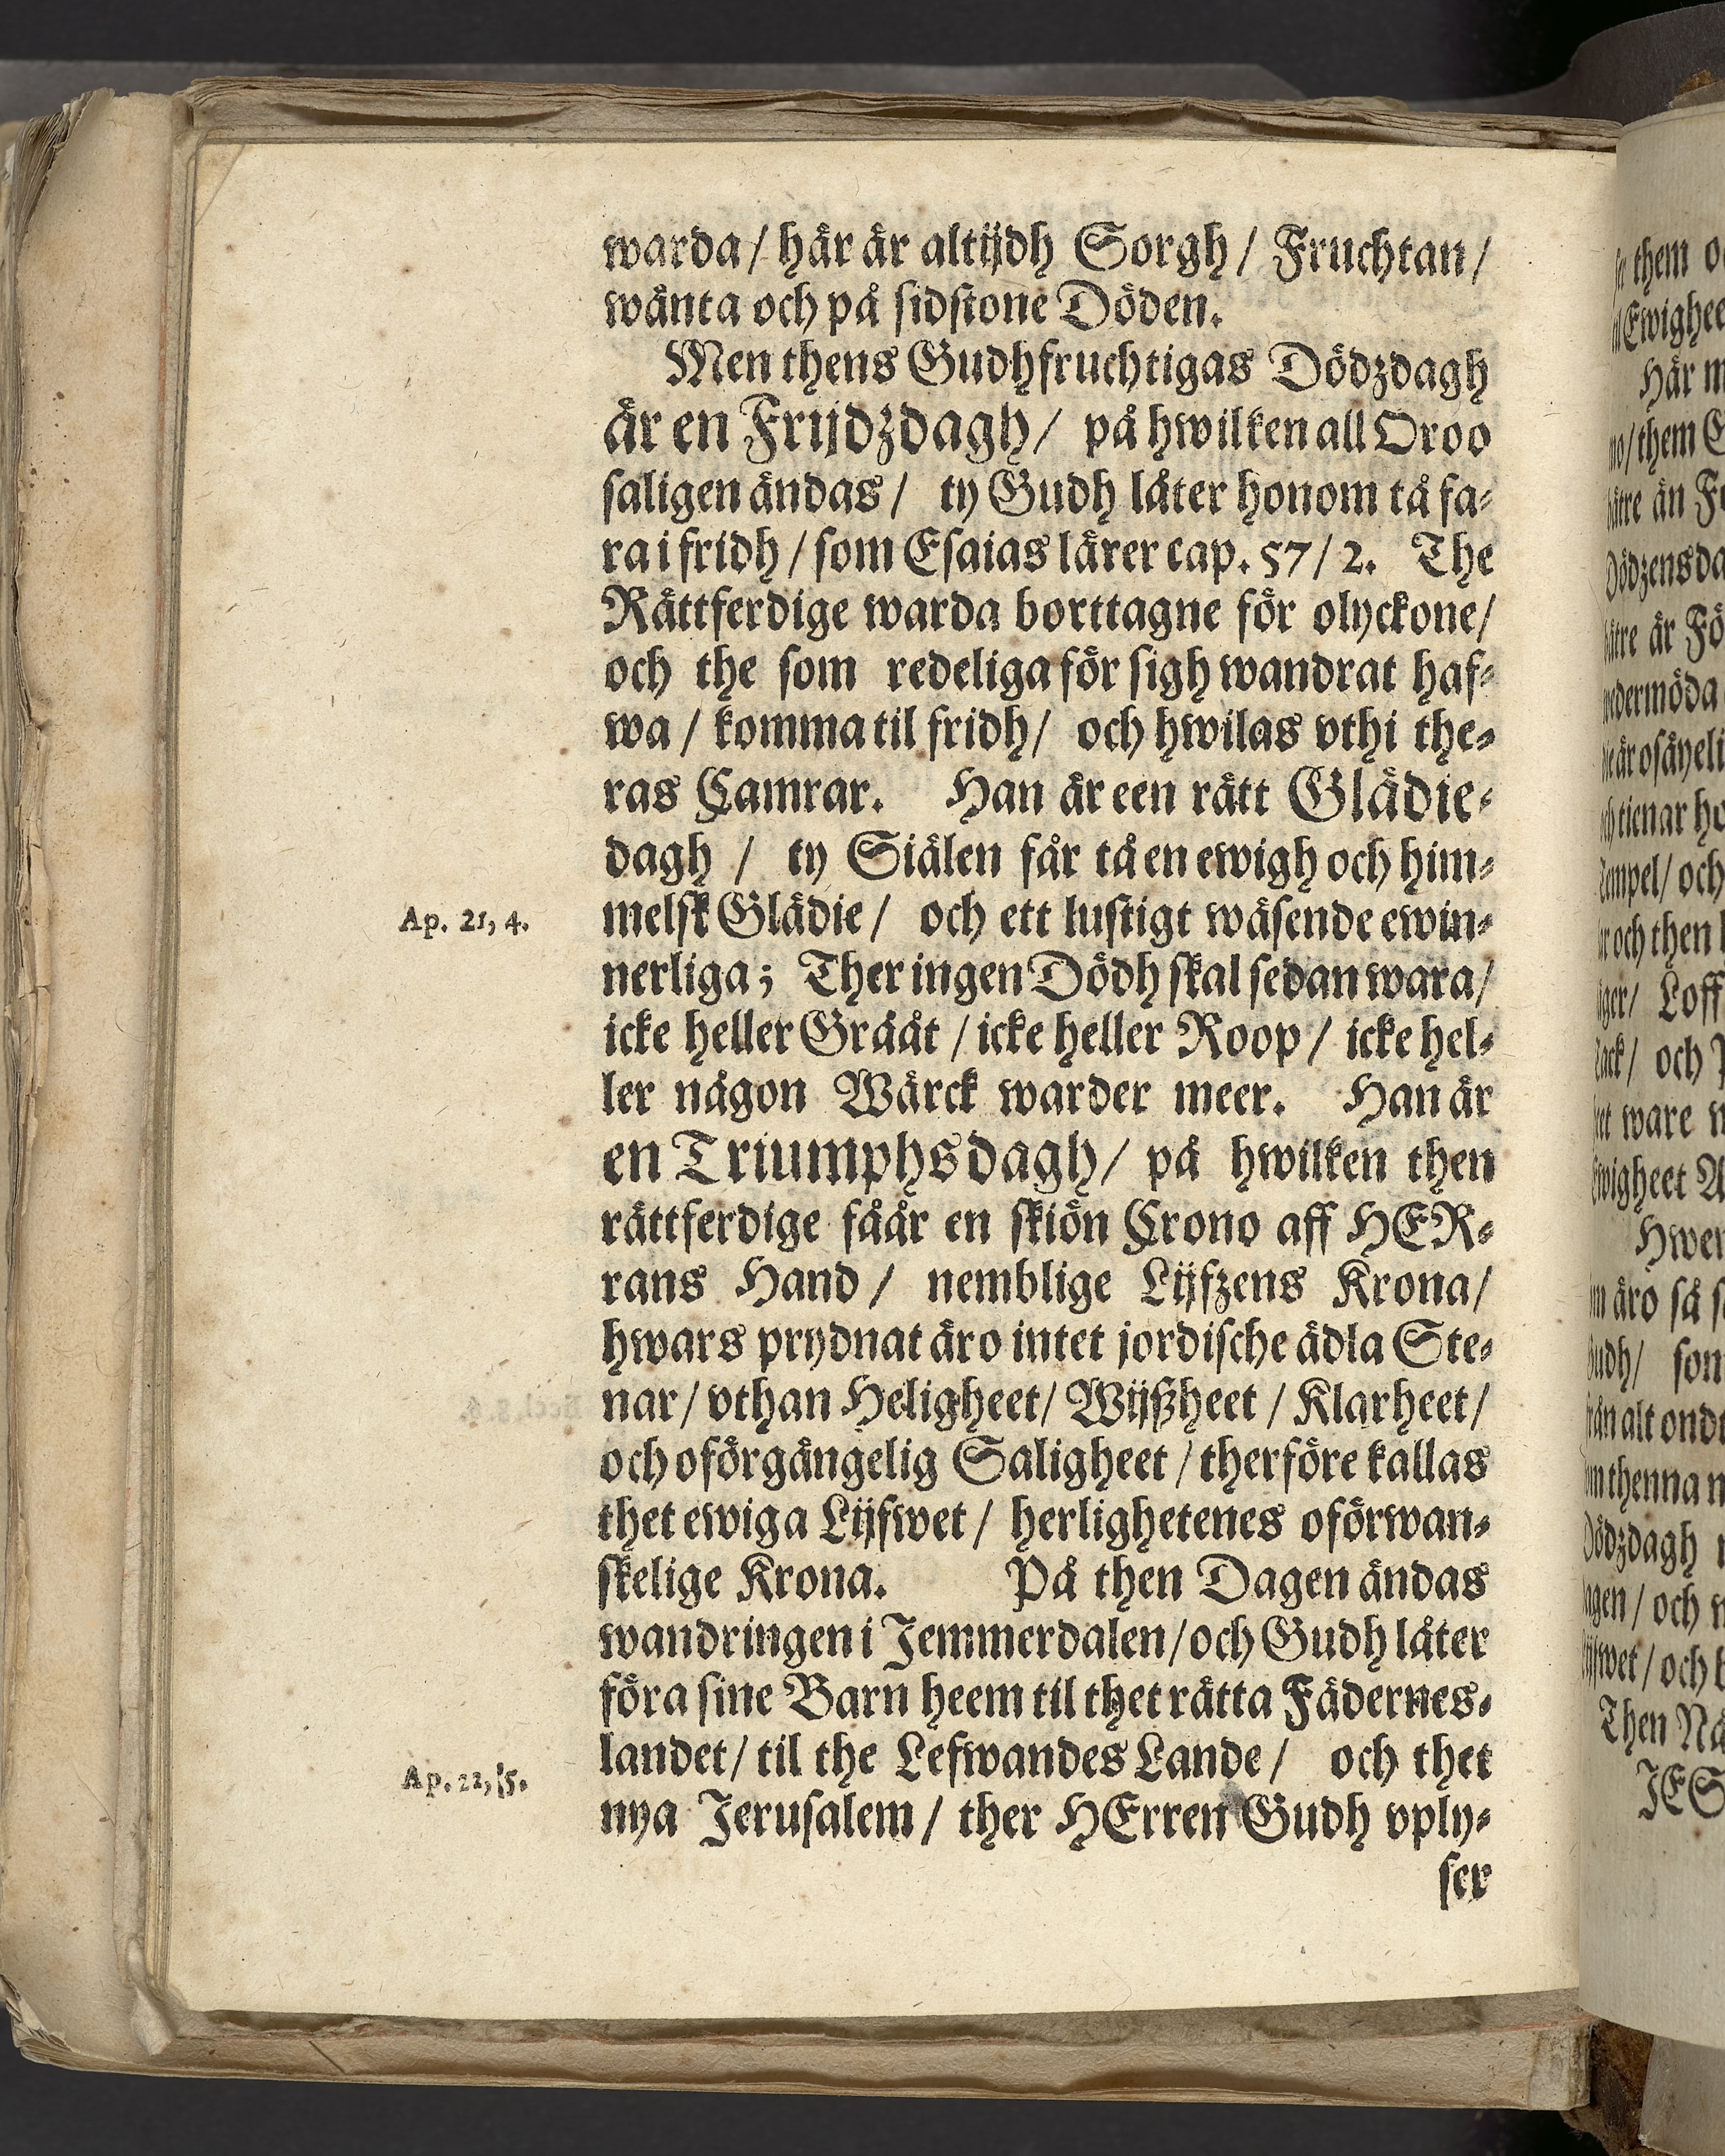 warda/ här är altijdh Sorgh/ Fruchtan/
wänta och på sidstone Döden.
Men thens Gudhfruchtigas Dödzdagh
är en Frijdzdagh/ på hwilken all Oroo
saligen ändas/ ty Gudh låter honom tå fa-
ra i fridh/ som Esaias lärer cap. 57/2. The
Rättferdige warda borttagne för olyckone/
och the som redeliga för sigh wandrat haf-
wa/ komma til fridh/ och hwilas vthi the-
ras Camrar. Han är een rätt Glädie-
dagh / ty Siälen får tå en ewigh och him-
Ap. 21, 4.
melsk Glädie/ och ett lustigt wäsende ewin-
nerliga; Ther ingen Dödh skal sedan wara/
icke heller Gråät/ icke heller Roop/ icke hel-
ler någon Wärck warder meer. Han är
en Triumphsdagh/ på hwilken then
rättferdige fåår en skiön Crono aff HER-
rans Hand/ nemblige Lijfzens Krona/
hwars prydnat äro intet jordische ädla Ste-
nar/ vthan Heligheet/ Wijßheet/ Klarheet/
och oförgängelig Saligheet/ therföre kallas
thet ewiga Lijfwet/ herlighetenes oförwan-
skelige Krona. På then Dagen ändas
wandringen i Jemmerdalen/ och Gudh låter
föra sine Barn heem til thet rätta Fädernes-
landet/ til the Lefwandes Lande/ och thet
Ap. 22, 5.
nya Jerusalem/ ther HErren Gudh vply-
ser
them
Ewighee
Här m
them
än
Dödzens da
är
tienar ho
och
och then
Loff
och
ware
Hwer
äro så
som
alt ondt
thenna
Dödzdagh
och
och
Then Nå
JES